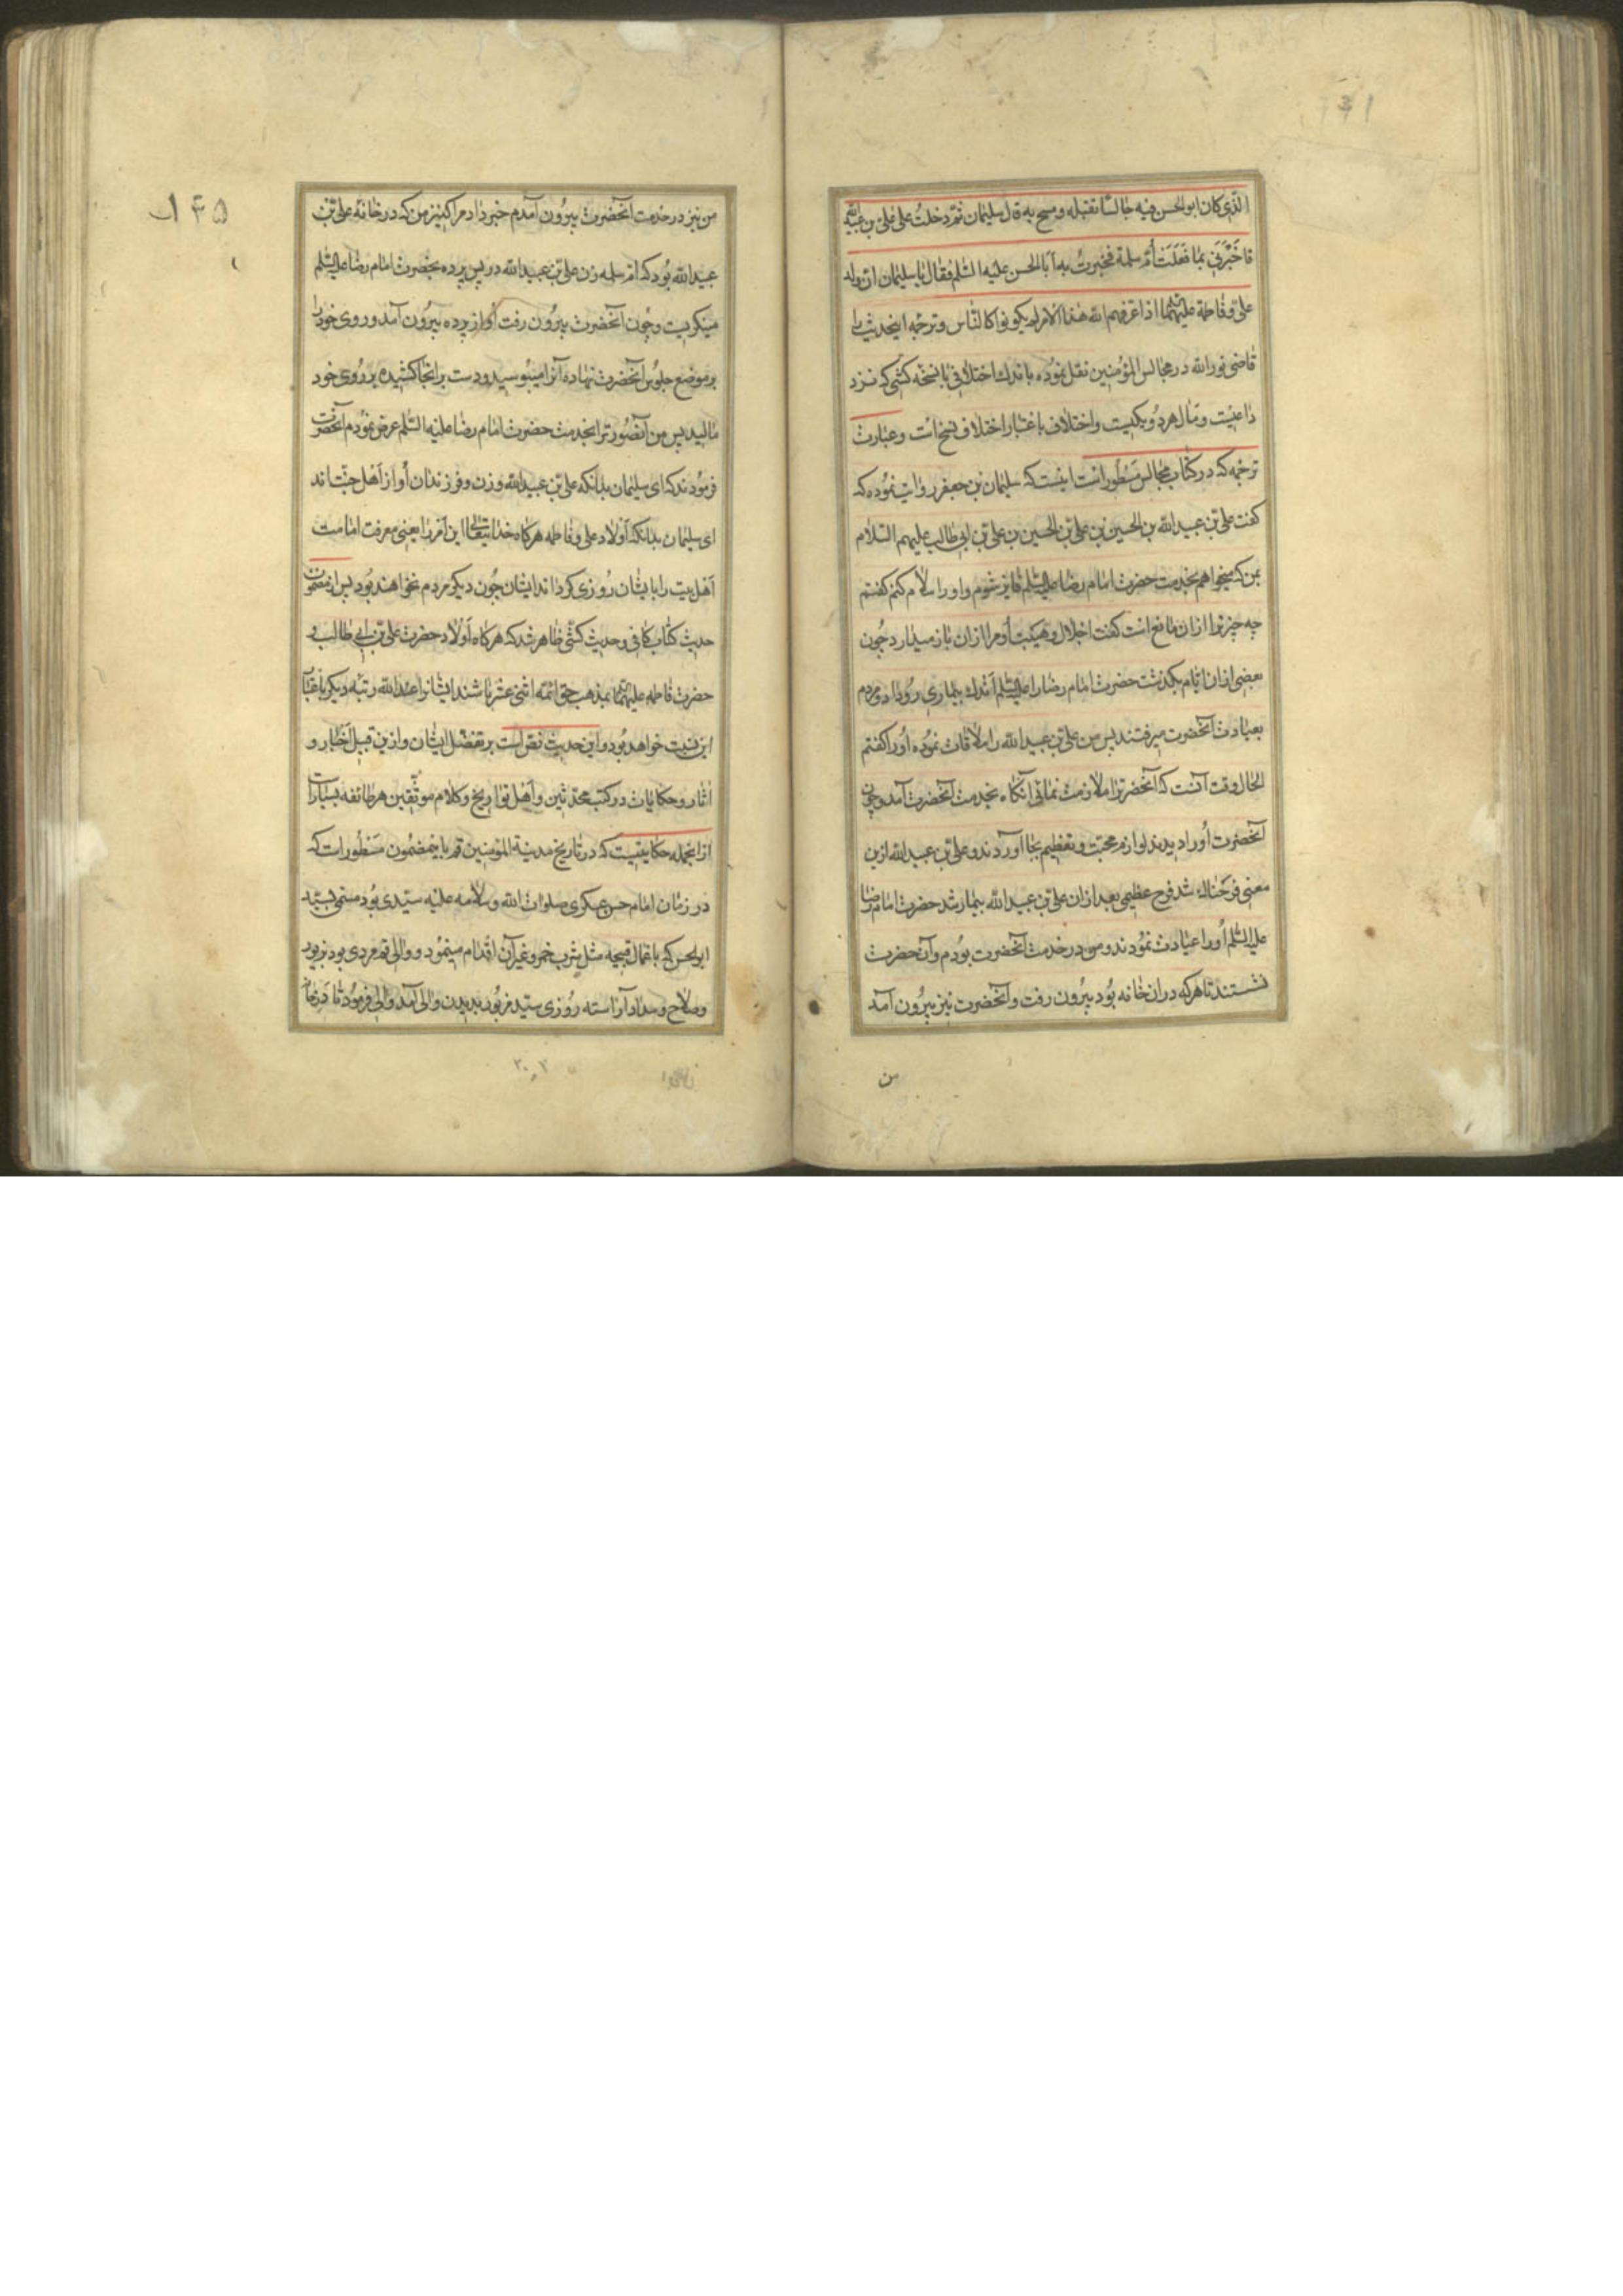 ۱۴۱
الّذی کان ابوالحسن فیه جالسًا تقبله و تمسح به قال سلیمان ثمّ دخلتُ علی علیّ بن عبید الله
فاخبرَنی بما فَعَلَت اُمّ سلمة فخبرتُ به اَبَا الحسن علیه السّلم فقال یا سلیمان انّ ولد
علی و فاطمة علیهما اذا عرفهم الله هذا الامر لم یکونوا کالنّاس و ترجمه اینحدیث را
قاضی نورالله در مجالس المؤمنین نقل نموده باندک اختلافی با نسخهٔ کشی که نزد
داعیست و مآل هر دو یکیست و اختلاف باعتبار اختلاف نسخ است و عبارت
ترجمه که در کتاب مجالس مسطور است اینست که سلیمان بن جعفر روایت نموده که
کفت علی بن عبید الله بن الحسین بن علی بن الحسین بن علی بن ابی طالب علیهم السّلام
بمن که میخواهم بخدمت حضرت امام رضا علیه السّلم فایز شوم و او را سلام کنم کفتم
چه چیز ترا ازان مانع است کفت اجلال و هیبت اُو مرا ازان باز میدارد چُون
بعضی ازان ایّام بکذشت حضرت امام رضا را علیه السّلم اَندک بیماری رُوداد و مردم
بعیادت آنحضرت میرفتند پس من علی بن عبید الله را ملاقات نموده اُورا کفتم
الحال وقت آنست که آنحضرترا ملازمت نمائی آنکاه بخدمت آنحضرت آمد و چون
آنحضرت اُورا دیدند لوازم محبّت و تعظیم بجا آوردند و علی بن عبید الله ازین
معنی فرحناک شد فرح عظیمی بعد ازان علی بن عبید الله بیمار شد حضرت امام رضا
علیه السّلم اُورا عیادت نمودند و من در خدمت آنحضرت بودم و آنحضرت
نشستند تا هرکه دران خانه بُود بیرُون رفت و آنحضرت نیز بیرُون آمد
من
۱۴۵
من نیز در خدمت آنحضرت بیرُون آمدم خبر داد مرا کنیز من که در خانهٔ علی بن
عبید الله بُود که امّ سلمه زن علی بن عبید الله در پس پرده بحضرت امام رضا علیه السّلم
مینکریست و چون آنحضرت بیرُون رفت اُو از پرده بیرُون آمد و روی خود را
بر موضع جلوس آنحضرت نهاده آنرا میبوسید و دست برانجا کشیده بر رُوی خود
مالید پس من آنصُورت را بخدمت حضرت امام رضا علیه السّلم عرض نمودم آنحضرت
فرمودند که ای سلیمان بدانکه علی بن عبید الله و زن و فرزندان اُو از اَهل جنّت اند
ای سلیمان بدانکه اَولاد علی و فاطمه هرکاه خدایتعالی این اَمر را یعنی معرفت امامت
اَهل بیت را بایشان رُوزی کرداند ایشان چُون دیکر مردم نخواهند بُود پس از مضمون
حدیث کتاب کافی و حدیث کشّی ظاهر شد که هرکاه اَولاد حضرت علی بن ابی طالب و
حضرت فاطمه علیهما بمذهب حق ائمّه اثنی عشر باشند ایشانرا عند الله رتبه دیکر باعتبار
این نسبت خواهد بُود و این حدیث نصّ است بر تفضّل ایشان و ازین قبیل اَخبار و
اثار و حکایات در کتب محدّثین و اَهل تواریخ و کلام موثّقین هر طائفه بسیار است
ازانجمله حکایتیست که در تاریخ مدینة المؤمنین قم باینمضمون مسطور است که
در زمان امام حسن عسکری صلوات الله و سلامه علیه سیّدی بُود مسمّی بسیّد
ابوالحسن که باعمال قبیحه مثل شرب خمر و غیر آن اقدام مینمود و والی قم مردی بود بزیور
و صلاح و سداد آراسته رُوزی سیّد مزبُور بدیدن والی آمد والی فرمُود تا
۳۰۲